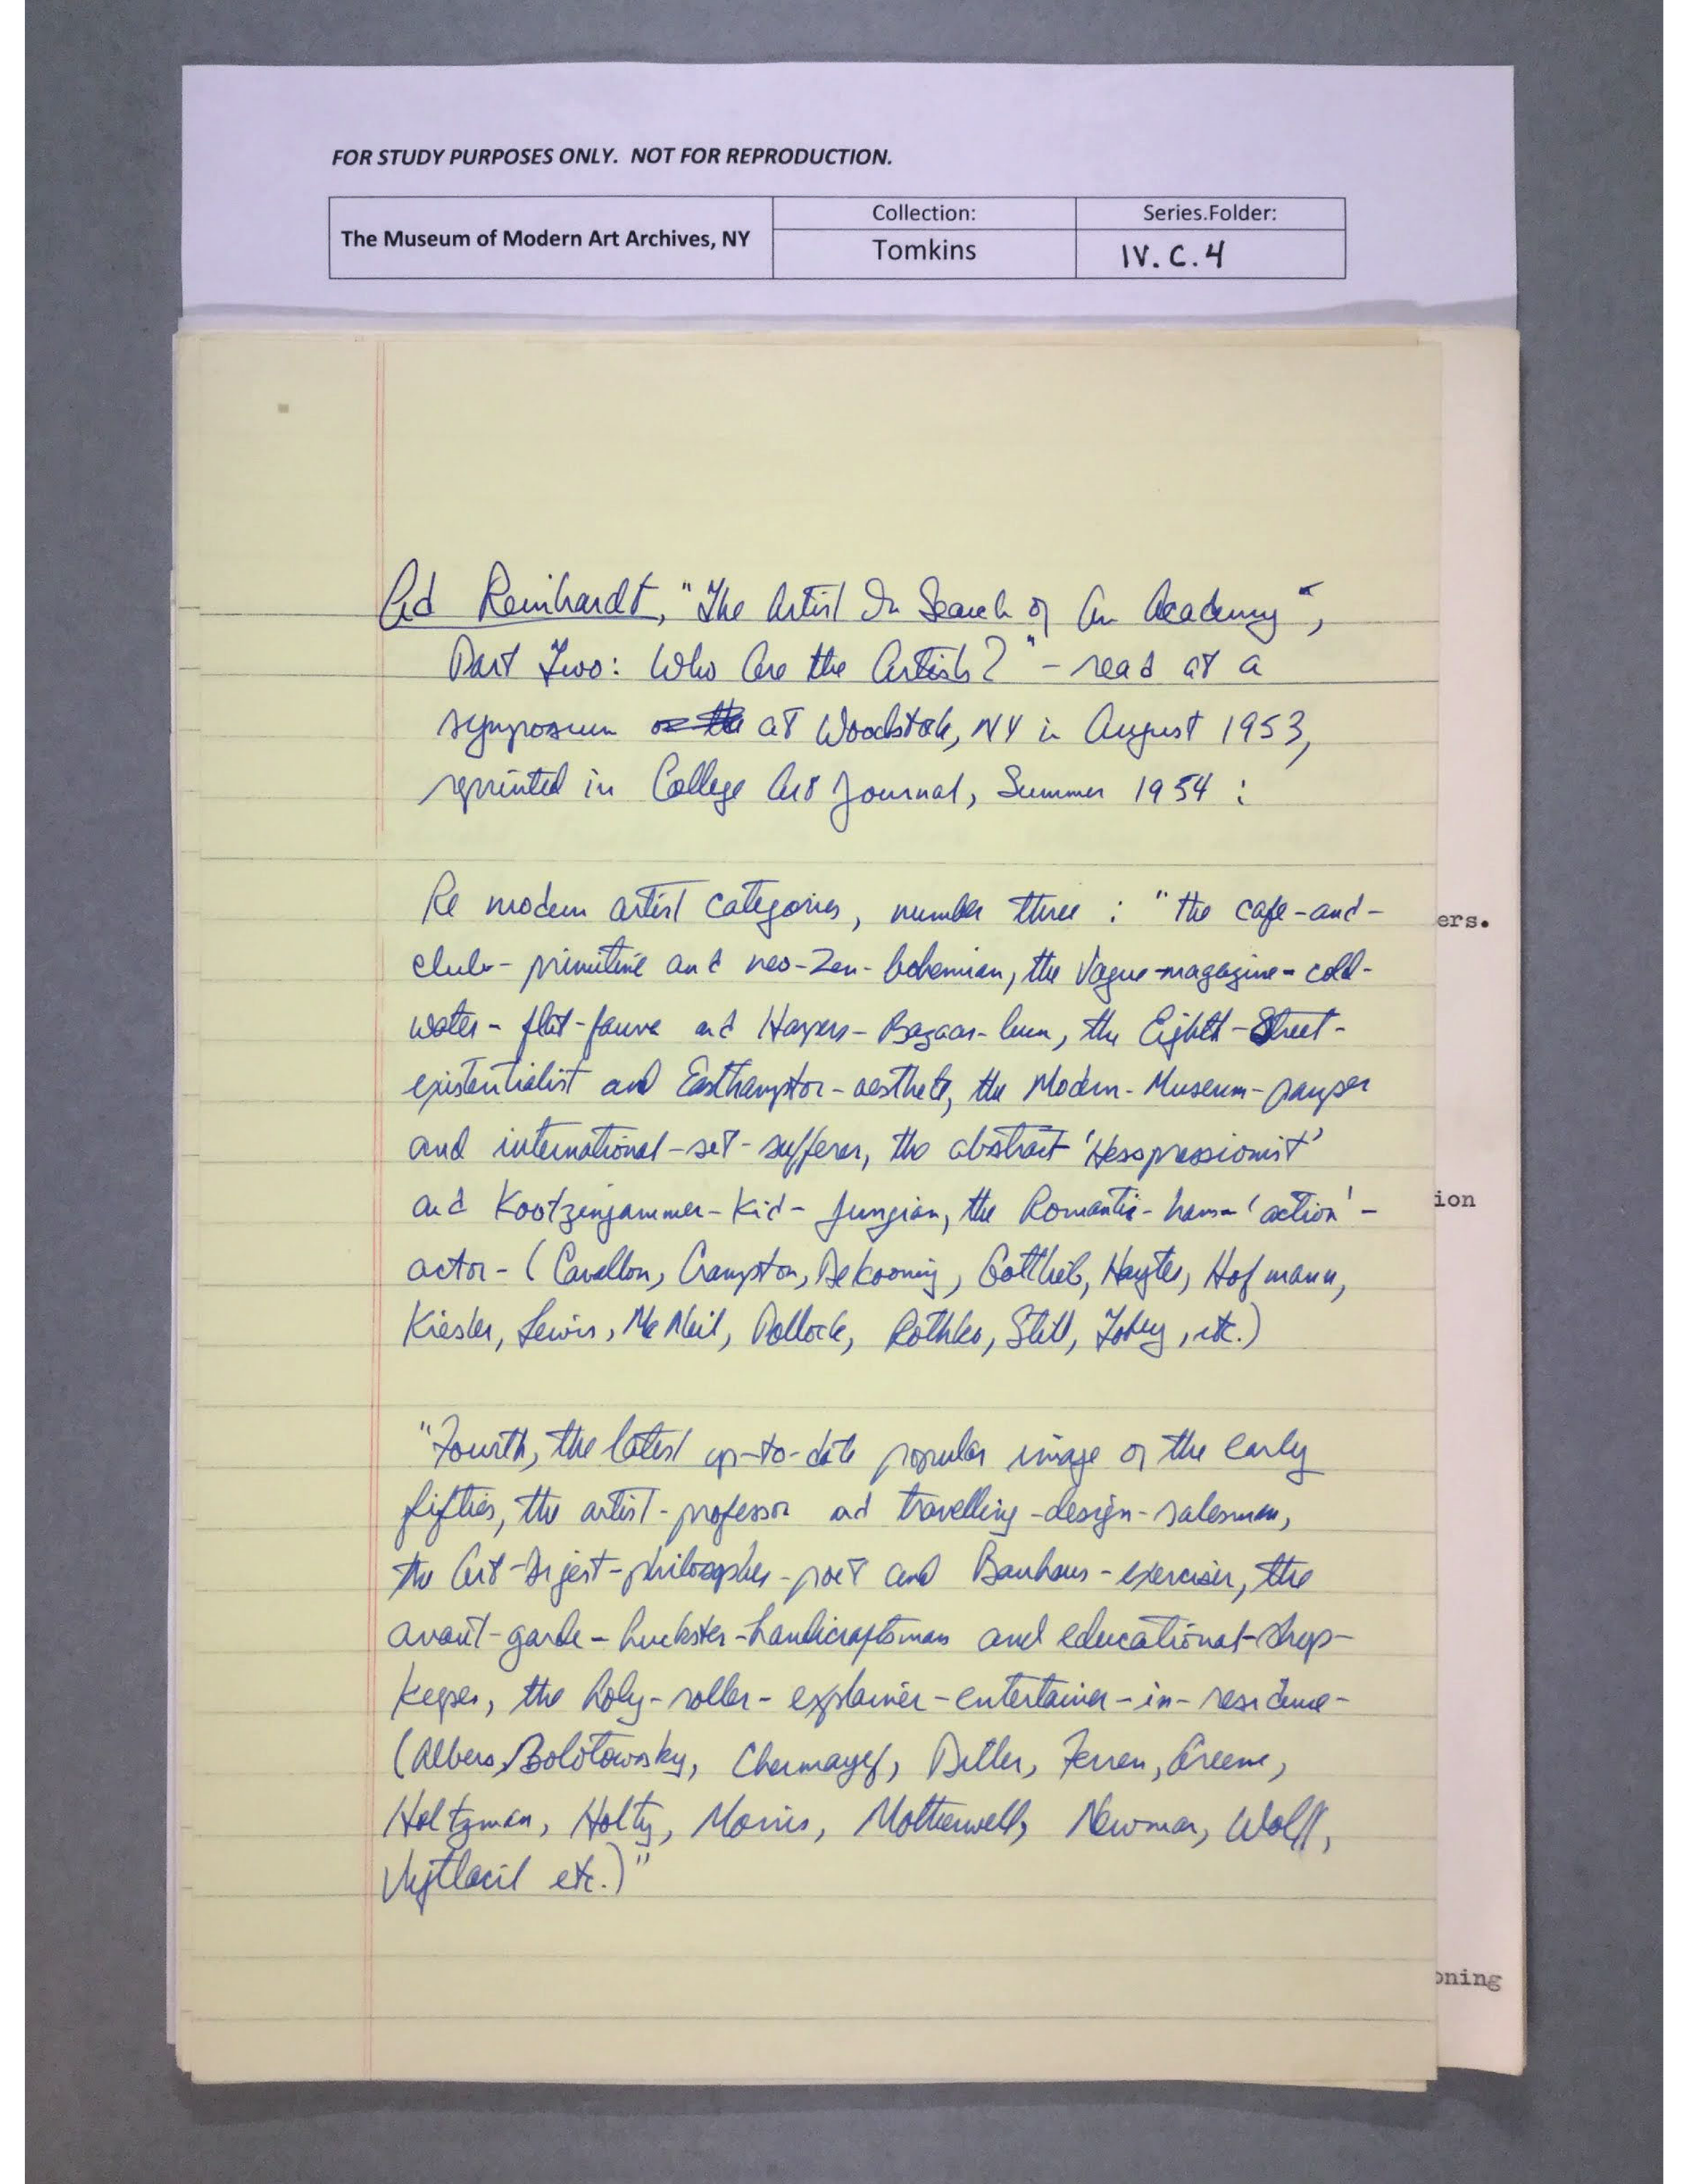 FOR STUDY PURPOSES ONLY. NOT FOR REPRODUCTION.
The Museum of Modern Art Archives, NY
Collection:
Tomkins
Series.Folder:
IV.C.4
Ad Reinhardt, "The Artist In Search of An Academy",
Part Two: Who Are the Artists?" - read at a
symposium at Woodstock, NY in August 1953,
reprinted in College Art Journal, Summer 1954 :
Re modern artist categories, number three : "the cafe-and-
club-primitive and neo-Zen-bohemian, the Vogue-magazine-cold-
water-flat-fauve and Harpers-Bazaar-bum, the Eighth-Street-
existentialist and Easthampton-aesthete, the Modern-Museum-pauper
and international-set-sufferer, the abstract 'Hesspressionist'
and Kootzenjammer-Kid-Jungian, the Romantic-ham-'action'-
actor- (Cavallon, Crampton, DeKooning, Gottlieb, Hayter, Hofmann,
Kiesler, Lewis, McNeil, Pollock, Rothko, Still, Tobey, etc.)
"Fourth, the latest up-to-date popular image of the early
fifties, the artist-professor and travelling-design-salesman,
the Art-Digest-philosopher-poet and Bauhaus-exerciser, the
avant-garde-huckster-handicraftsman and educational-shop-
keeper, the holy-roller-explainer-entertainer-in-residence-
(Albers, Bolotowsky, Chermayeff, Diller, Ferren, Greene,
Holtzman, Holty, Morris, Motherwell, Newman, Wolff,
Vytlacil etc.)"
ers.
ion
oning